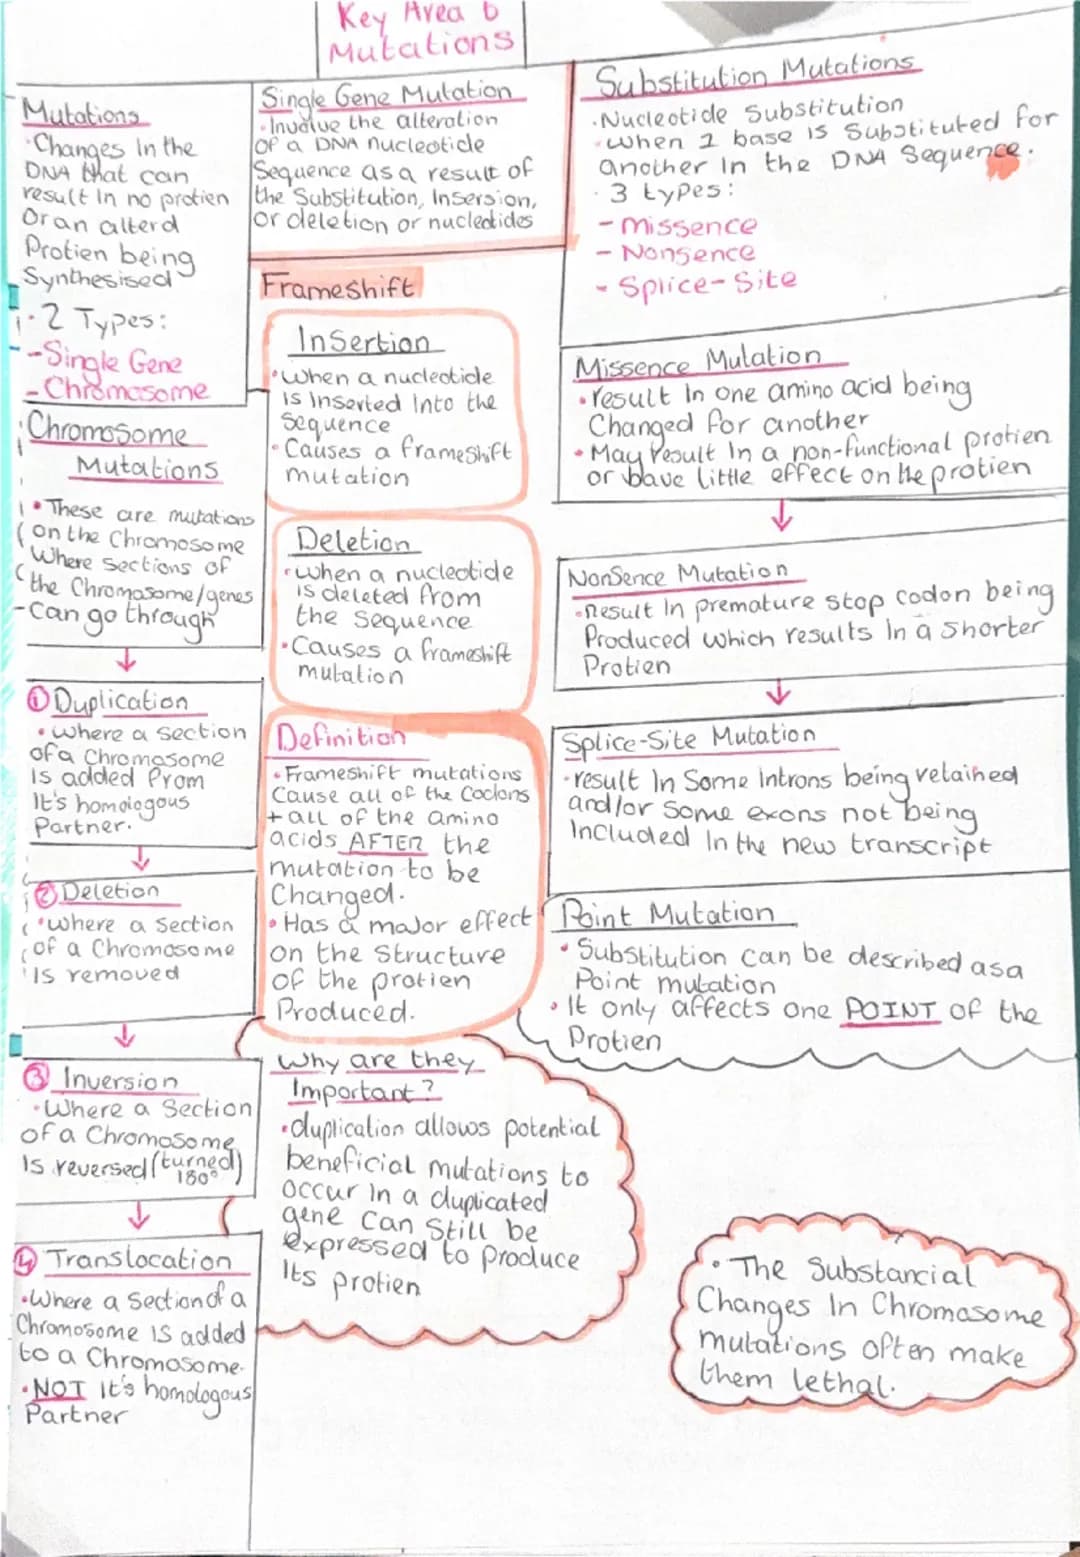 Key Area 6
Mutations
Mutations
• Changes In the
DNA that can
result In no protien
Or an alterd
Protien being
Synthesised
• 2 Types:
- Single Gene
- Chromosome
Chromosome
Mutations
• These are mutations
on the Chromosome
Where sections of
the Chromosome/genes
can go through
① Duplication
• where a section
of a Chromosome
Is added From
It's homologous
Partner.
② Deletion
• where a Section
of a Chromosome
Is removed
③ Inversion
• Where a Section
of a Chromosome
Is reversed (turned
180°)
④ Translocation
• Where a Section of a
Chromosome Is added
to a Chromosome.
• NOT It's homologous
Partner
Single Gene Mutation
• Involve the alteration
of a DNA nucleotide
Sequence as a result of
the Substitution, Insersion,
or deletion or nucleotides
Frameshift
Insertion
• When a nucleotide
Is Inserted Into the
Sequence
• Causes a frameshift
mutation
Deletion
• when a nucleotide
is deleted from
the Sequence
• Causes a frameshift
mutation
Definition
• Frameshift mutations
Cause all of the Codons
+ all of the amino
acids AFTER the
mutation to be
Changed.
• Has a major effect
on the Structure
of the protien
Produced.
Why are they
Important?
• duplication allows potential
beneficial mutations to
occur In a duplicated
gene can Still be
expressed to produce
Its protien
Substitution Mutations
• Nucleotide Substitution
• when 1 base is Substituted for
another In the DNA Sequence.
• 3 types:
- Missence
- Nonsence
- Splice-Site
Missence Mutation
• result In one amino acid being
Changed for another
• May result In a non-functional protien
or have little effect on the protien
NonSence Mutation
• Result In premature stop codon being
Produced which results In a Shorter
Protien
Splice-Site Mutation
• result In Some Introns being retained
and/or Some exons not being
Included In the new transcript
Point Mutation
• Substitution can be described as a
Point mutation
• It only affects one POINT of the
Protien
• The Substancial
Changes In Chromasome
mutations Often make
them lethal.